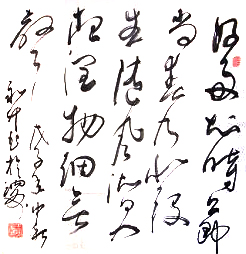 好雨知時節
當春乃發
生隨風潛入
夜潤物細無
聲 戊子年中秋
書於